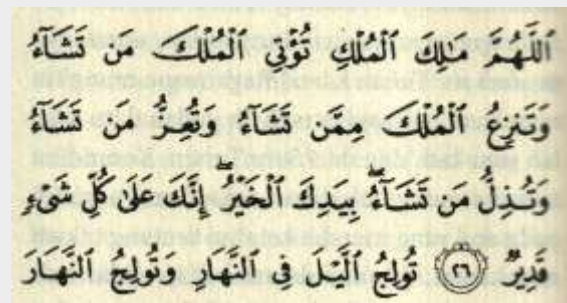 اللَّهُمَّ مَٰلِكَ ٱلْمُلْكِ تُؤْتِي ٱلْمُلْكَ مَن تَشَآءُ
وَتَنزِعُ ٱلْمُلْكَ مِمَّن تَشَآءُ وَتُعِزُّ مَن تَشَآءُ
وَتُذِلُّ مَن تَشَآءُۖ بِيَدِكَ ٱلْخَيْرُۖ إِنَّكَ عَلَىٰ كُلِّ شَىْءٍ
قَدِيرٌ ﴿٢٦﴾ تُولِجُ ٱلَّيْلَ فِي ٱلنَّهَارِ وَتُولِجُ ٱلنَّهَارَ